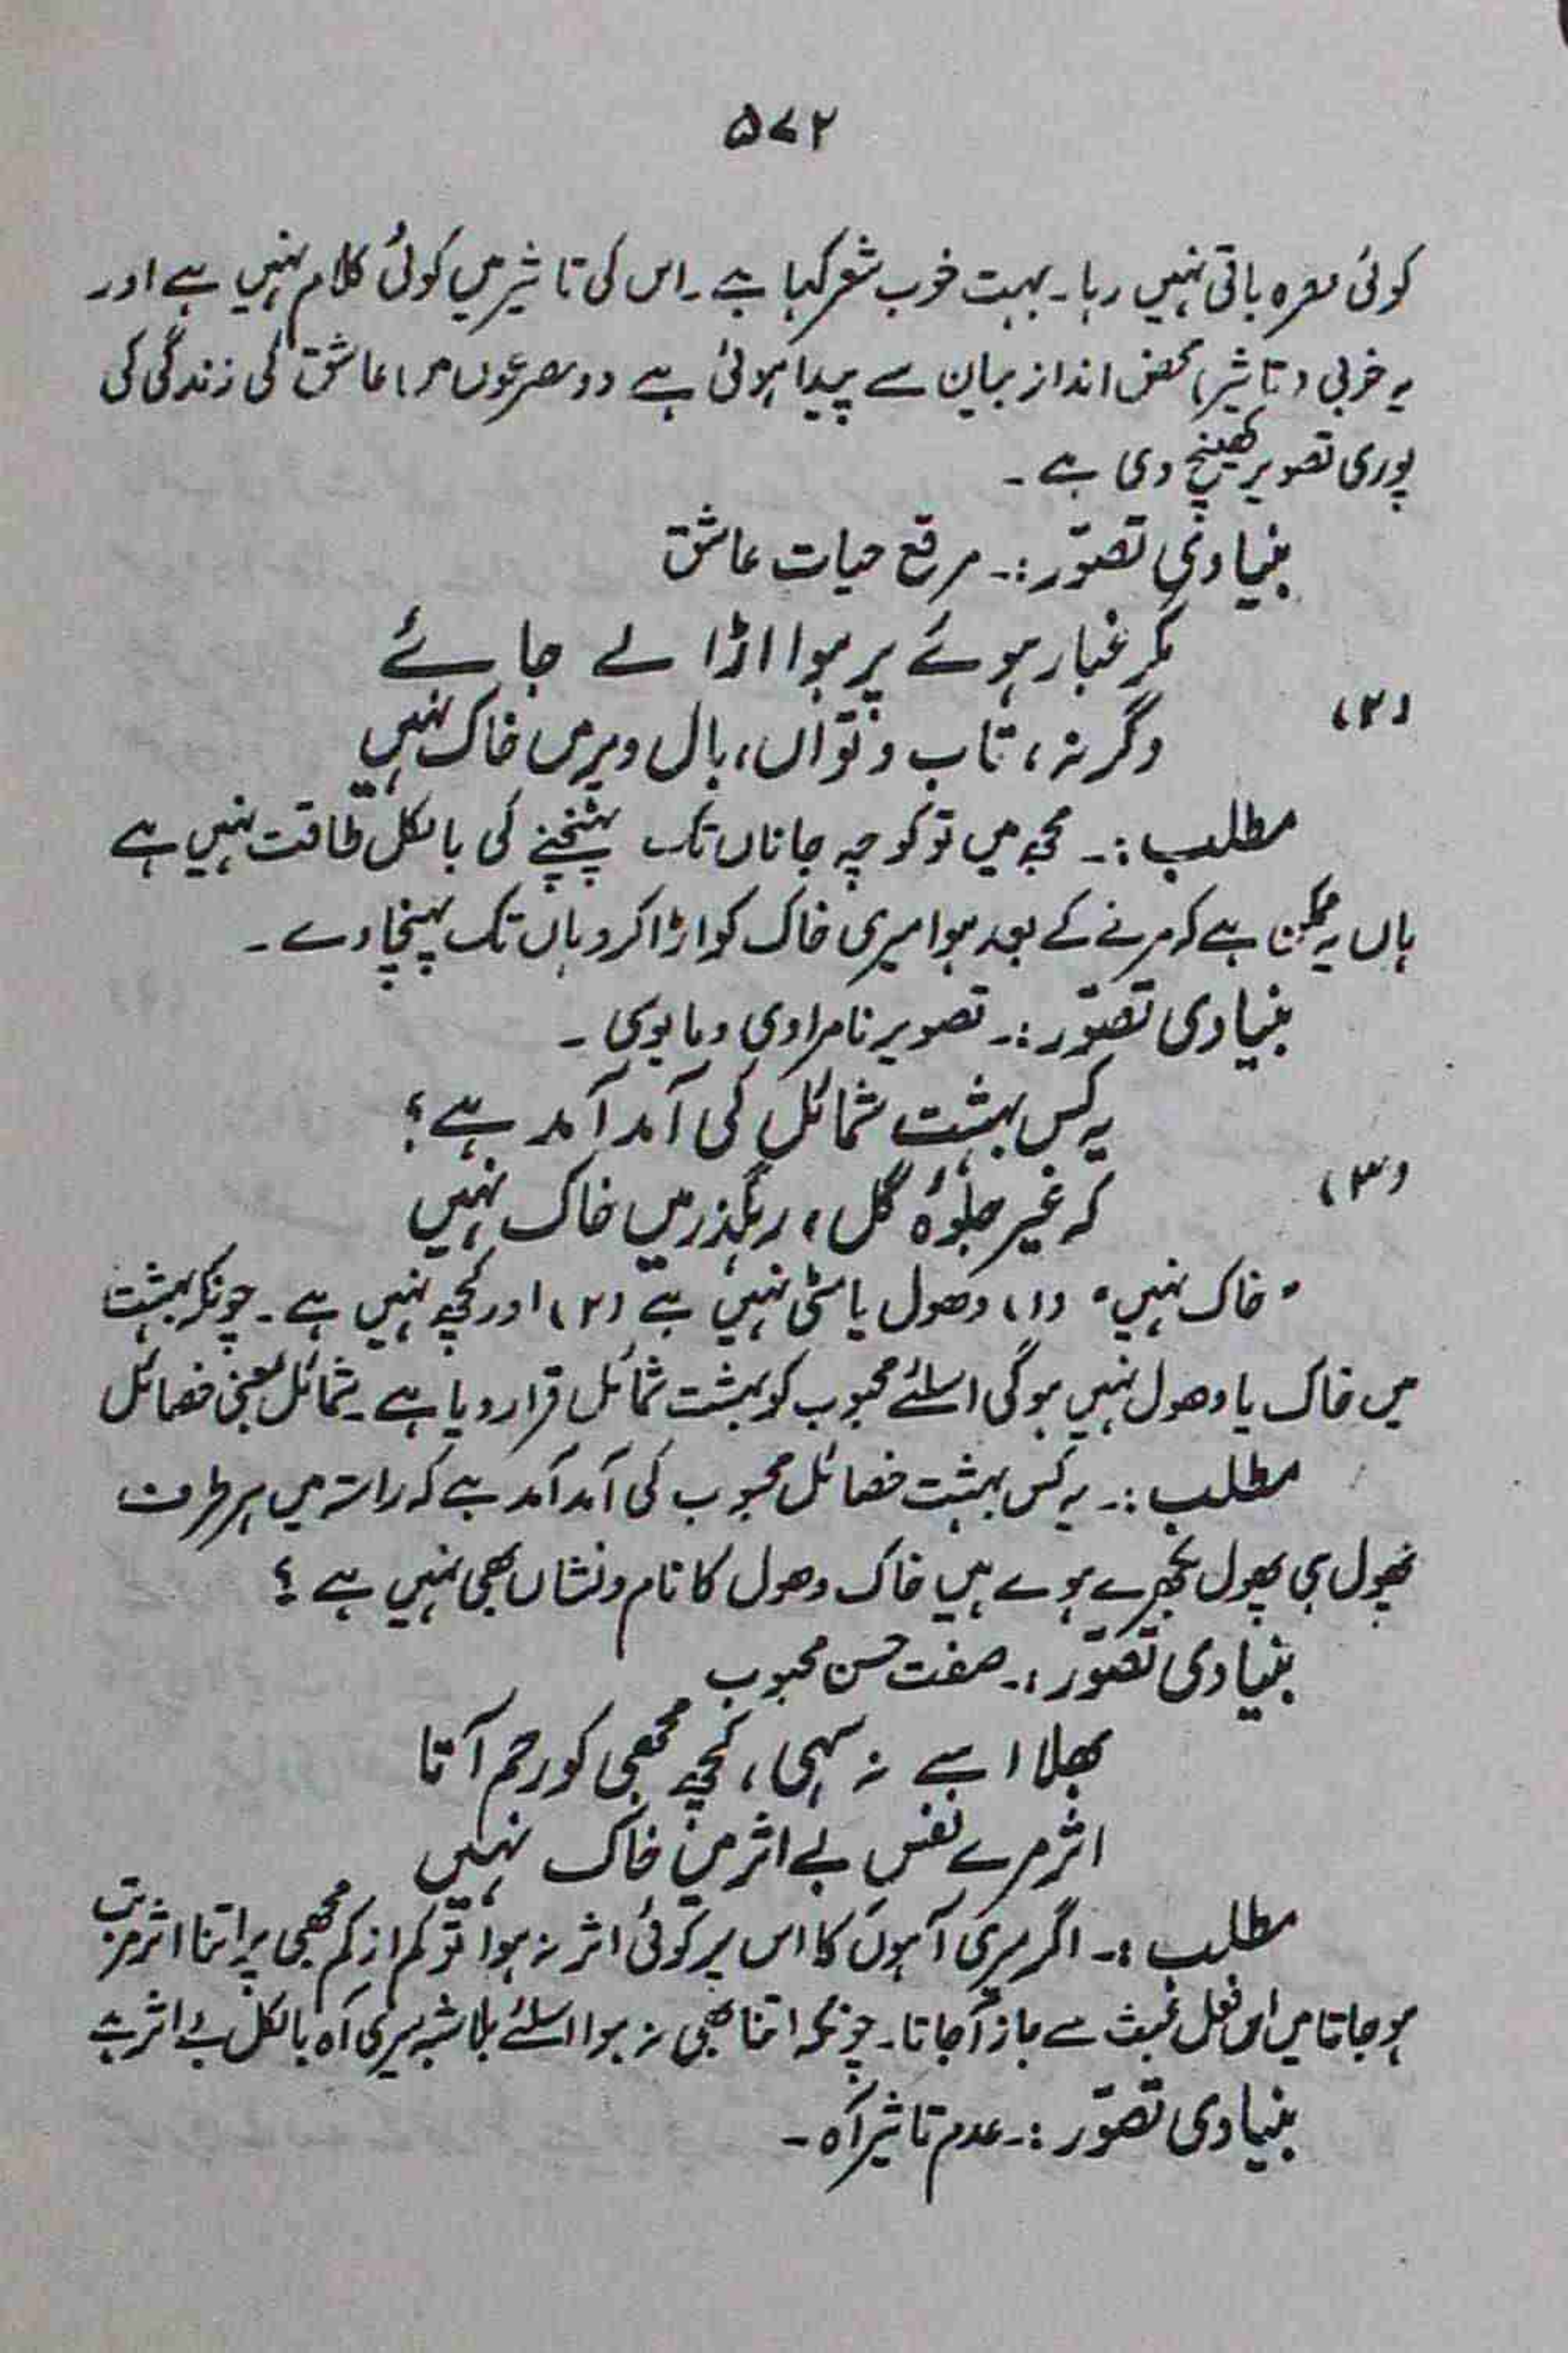 ۵۷۲
کوئی مزہ باقی نہیں رہا۔ بہت خوب شعر کہا ہے۔ اس کی تاثیر میں کوئی کلام نہیں ہے اور
یہ خوبی (تاثیر) محض انداز بیان سے پیدا ہوئی ہے دو مصرعوں میں عاشق کی زندگی کی
پوری تصویر کھینچ دی ہے۔
بنیادی تصوّر :۔ مرقع حیات عاشق
مگر غبار ہوئے پر ہوا اڑا لے جائے
(۲)
وگرنہ، تاب و تواں، بال و پر میں خاک نہیں
مطلب :۔ مجھ میں تو کوچہ جاناں تک پہنچنے کی بالکل طاقت نہیں ہے
ہاں یہ ممکن ہے کہ مرنے کے بعد ہوا میری خاک کو اڑا کر وہاں تک پہنچا دے۔
بنیادی تصوّر :۔ تصویر نامرادی و مایوسی۔
یہ کس بہشت شمائل کی آمد آمد ہے؟
(۳)
کہ غیر جلوۂ گل، رہگذر میں خاک نہیں
"خاک نہیں" (۱) دھول یا مٹی نہیں ہے (۲) اور کچھ نہیں ہے۔ چونکہ بہشت
میں خاک یا دھول نہیں ہوگی اسلئے محبوب کو بہشت شمائل قرار دیا ہے۔ شمائل بمعنی خصائل
مطلب :۔ یہ کس بہشت خصائل محبوب کی آمد آمد ہے کہ راستہ میں ہر طرف
پھول ہی پھول بکھرے ہوے ہیں خاک دھول کا نام و نشاں بھی نہیں ہے؟
بنیادی تصوّر :۔ صفت حسن محبوب
بھلا اسے نہ سہی، کچھ مجھی کو رحم آتا
اثر مرے نفس بے اثر میں خاک نہیں
مطلب :۔ اگر میری آہوں کا اس پر کوئی اثر نہ ہوا تو کم از کم مجھی پر اتنا اثر مرتب
ہو جاتا میں اس فعل عبث سے باز آجاتا۔ چونکہ اتنا بھی نہ ہوا اسلئے بلاشبہ میری آہ بالکل بے اثر ہے
بنیادی تصوّر :۔ عدم تاثیر آہ۔